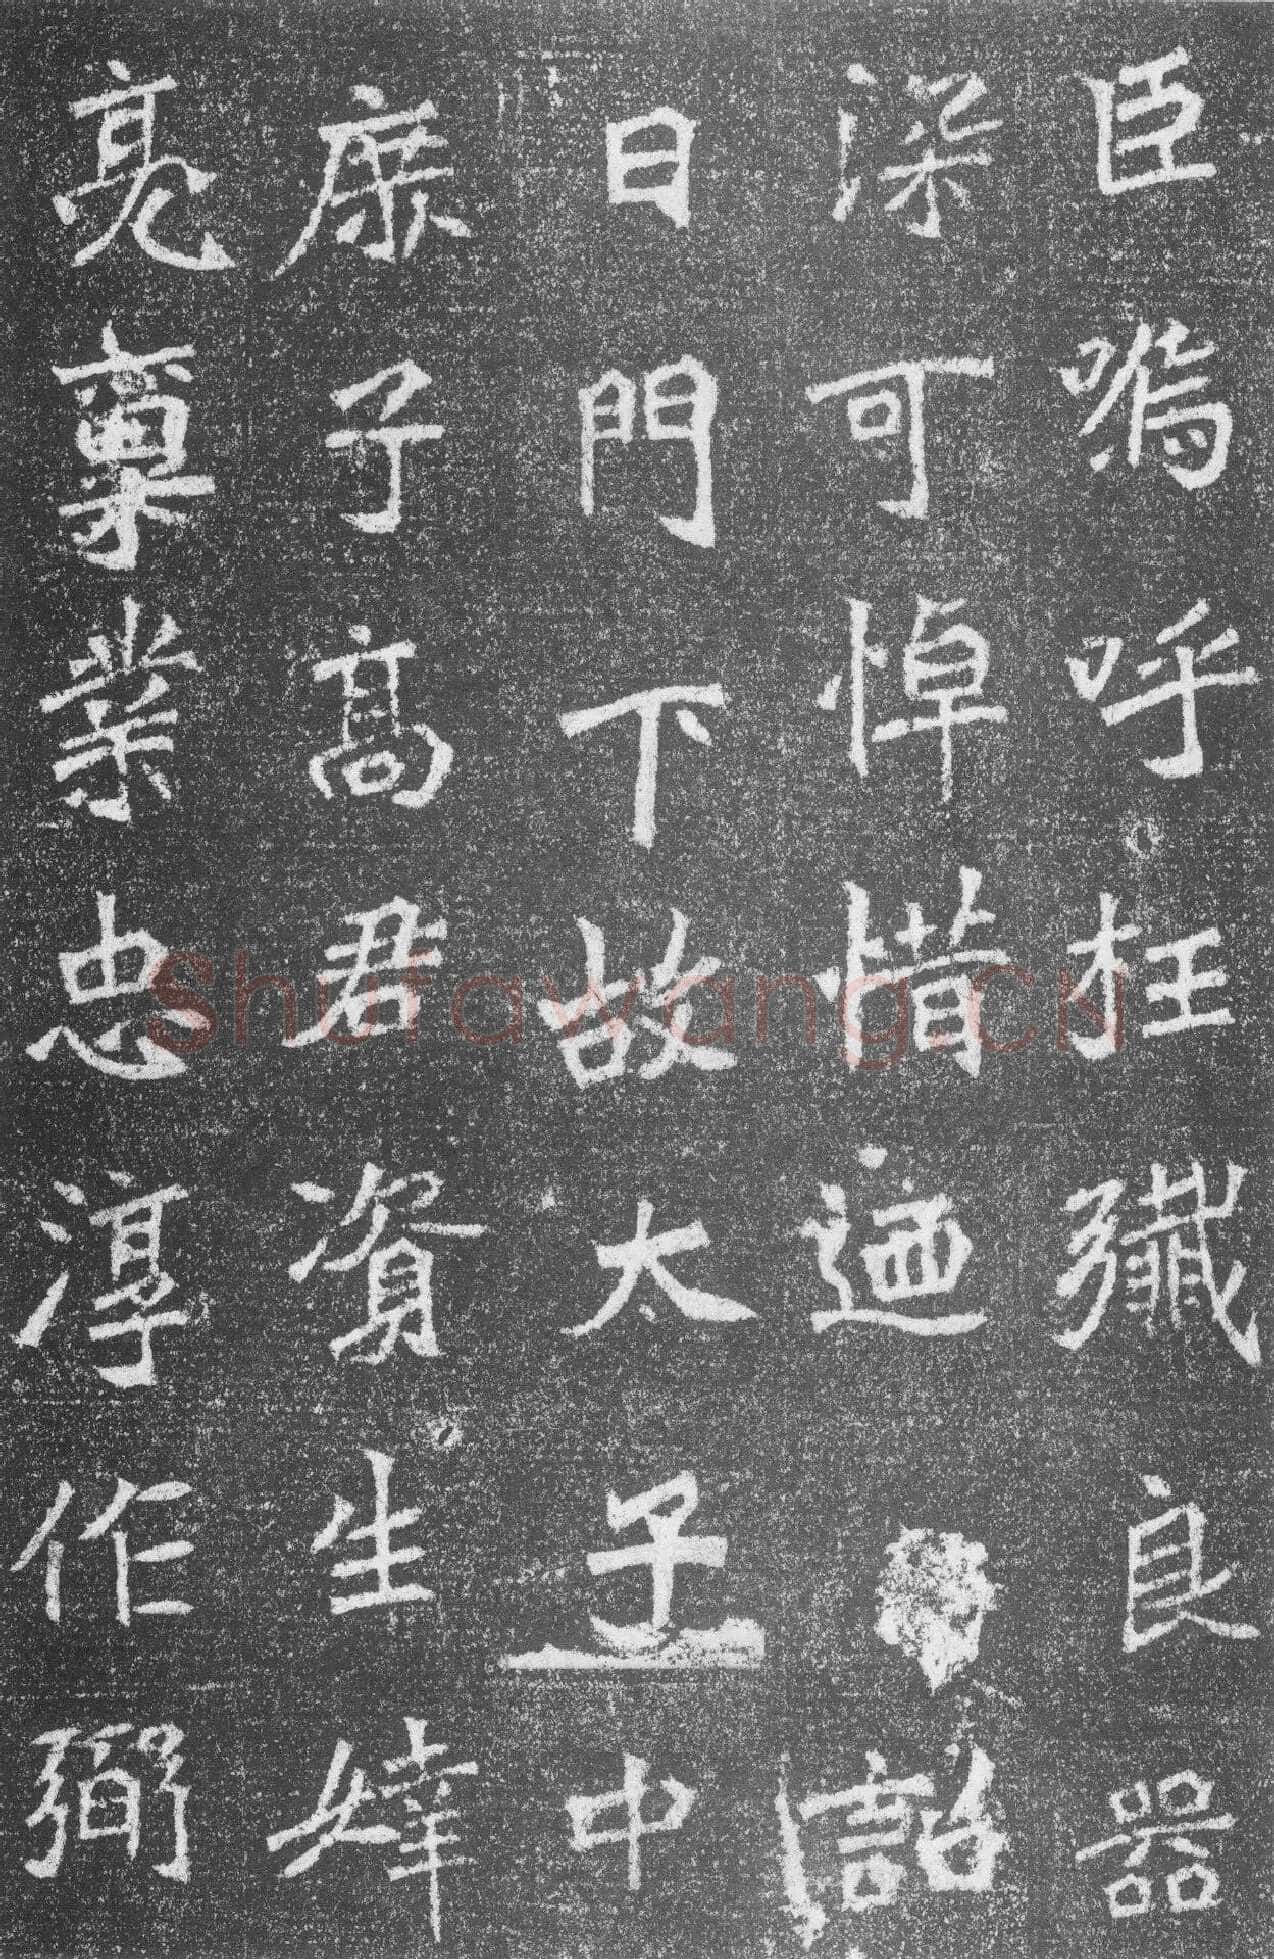 臣嗚呼抂殲良器
深可悼惜迺詔
曰門下故太子中
庶子高君資生緯
亮稟業忠淳作弼
Shufawang.CN